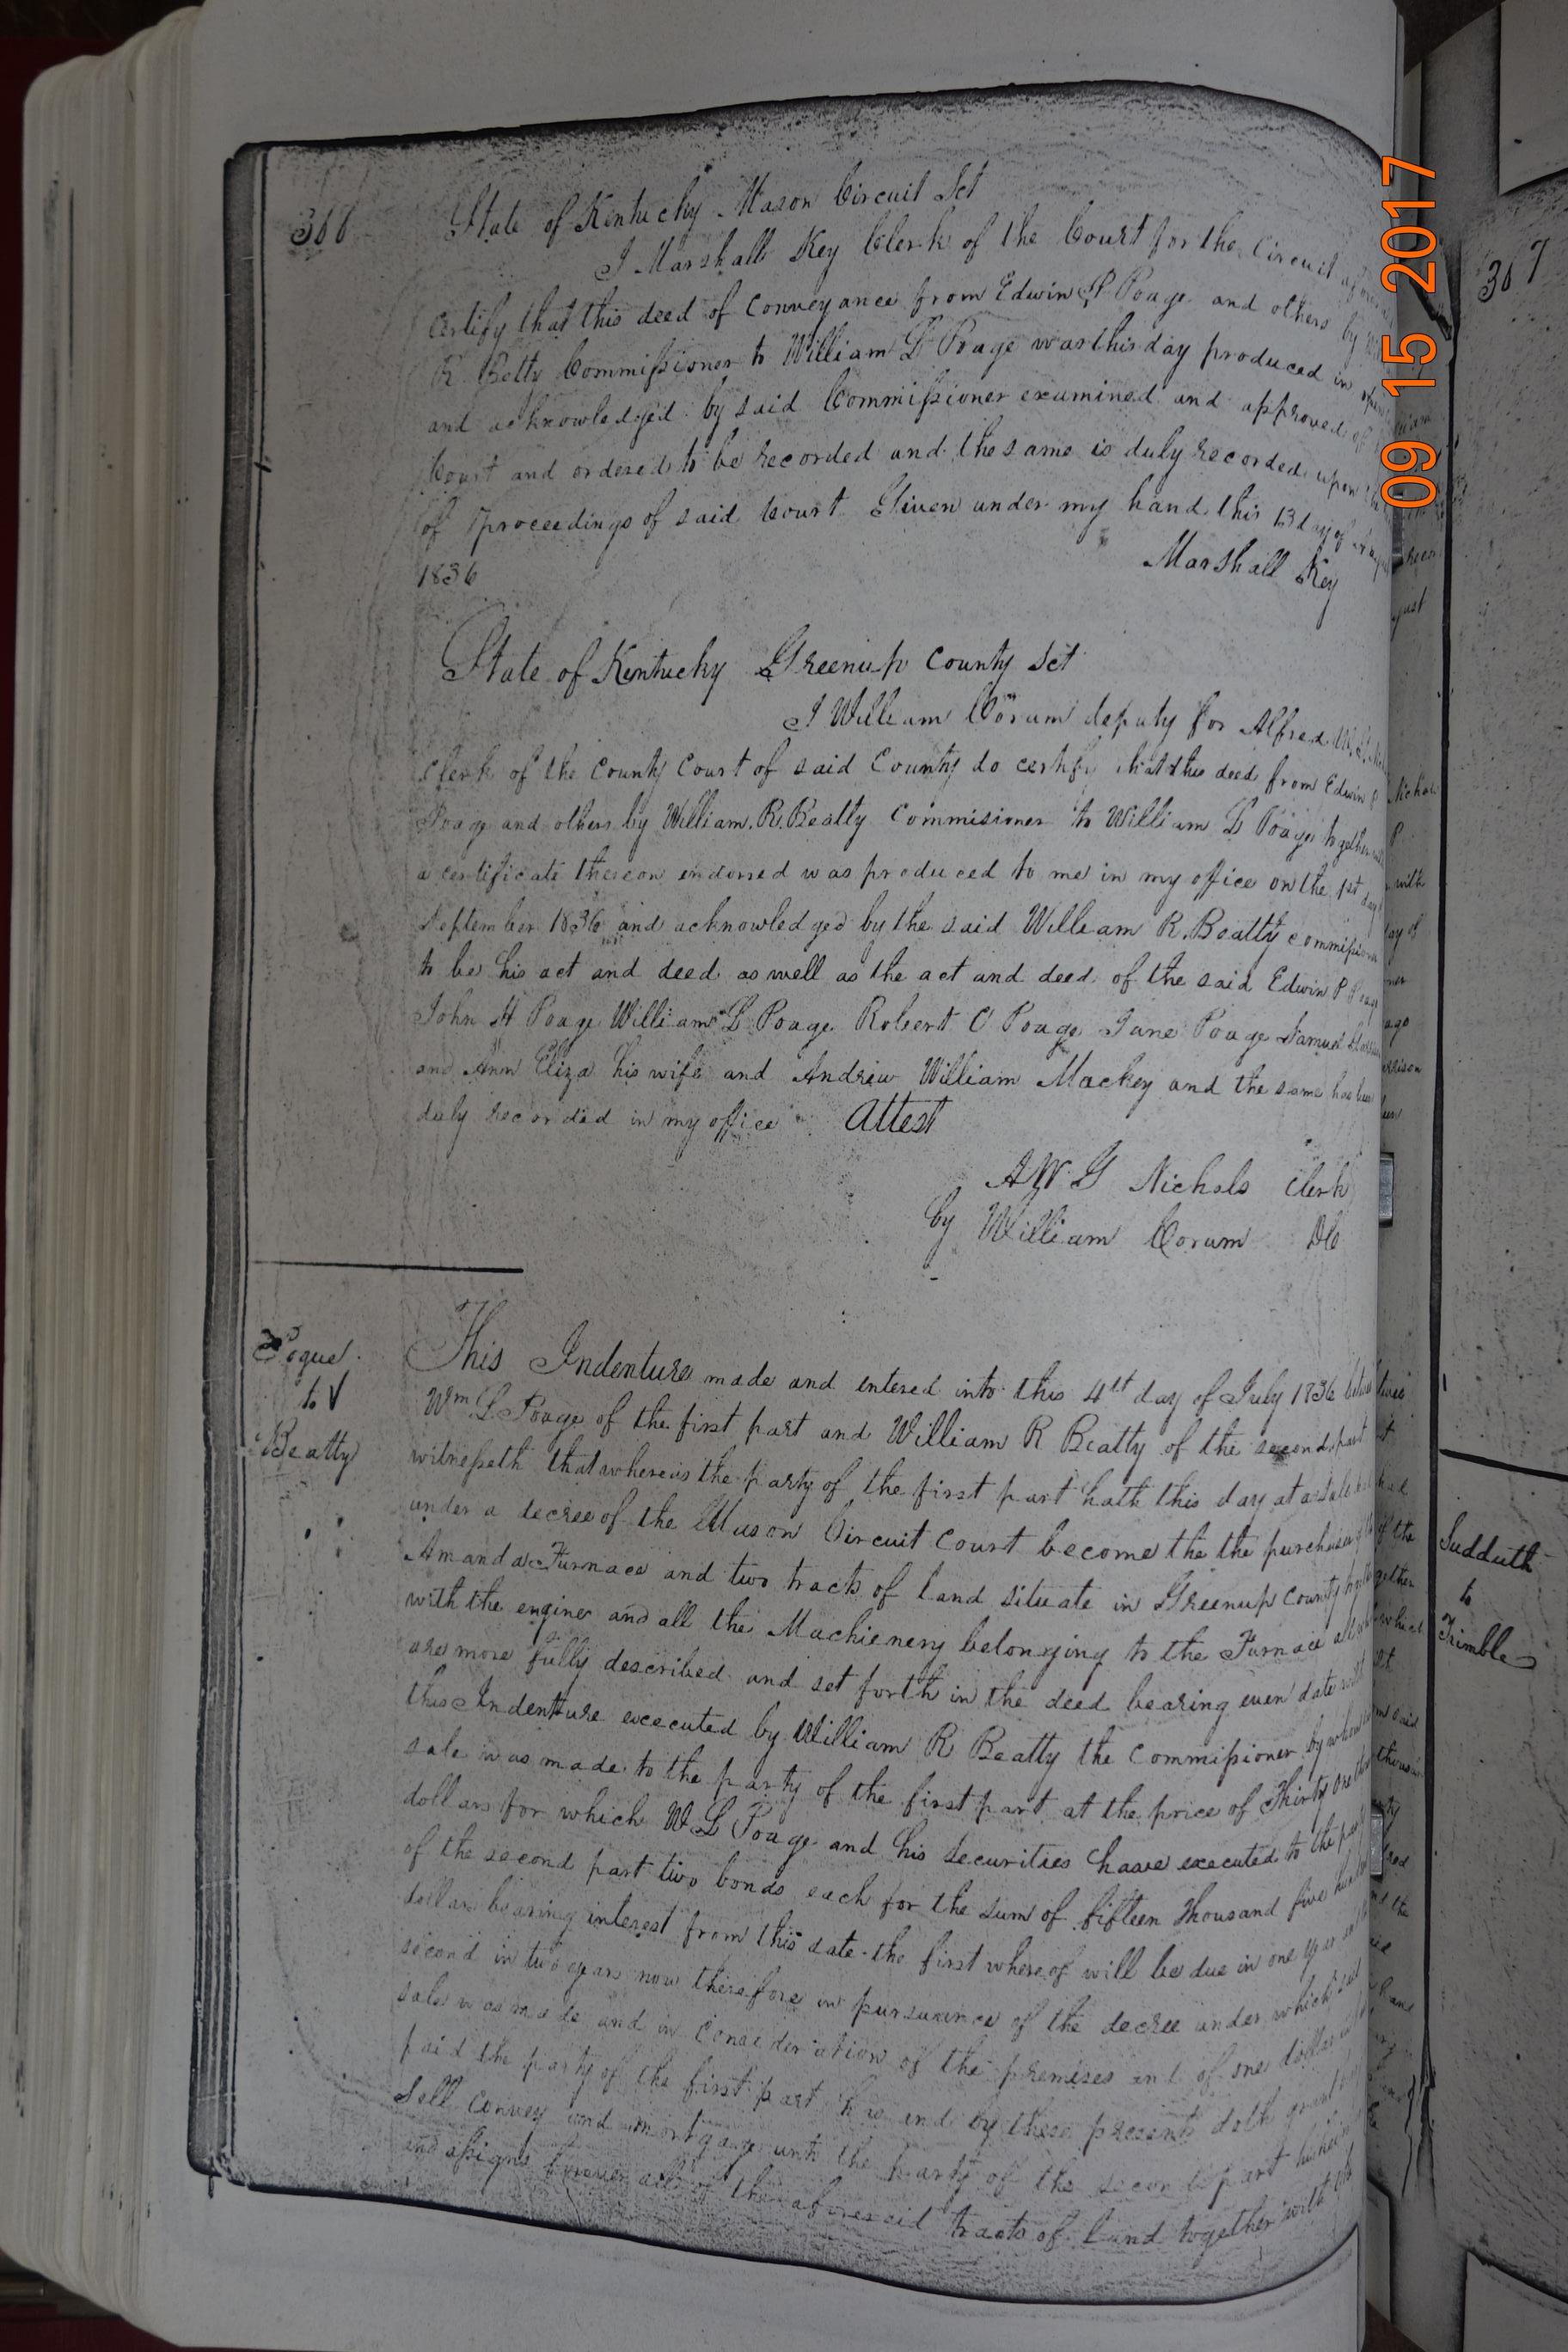 366
State of Kentucky Mason Circuit Sct
I Marshall Key Clerk of the Court for the Circuit
certify that this deed of Conveyance from Edwin P Poage and others by
R. Betty Commissioner to William L Poage was this day produced in open
and acknowledged by said Commissioner examined and approved of
Court and ordered to be recorded and the same is duly recorded upon the
of proceedings of said court Given under my hand this 13 day of
1836
Marshall Key
State of Kentucky Greenup County Sct
I William Corum deputy for Alfred
Clerk of the County Court of said County do certify that this deed from Edwin P
Poage and others by William R. Beatty Commisioner to William L Poage together with
a certificate thereon endorsed was produced to me in my office on the 1st day
September 1836 and acknowledged by the said William R. Beatty commissioner
to be his act and deed as well as the act and deed of the said Edwin P Poage
John H Poage William L Poage Robert C Poage Jane Poage Samuel
and Ann Eliza his wife and Andrew William Mackey and the same has been
duly recorded in my office Attest
A W G Nichols Clerk
by William Corum DC
Pogue
to
Beatty
This Indenture made and entered into this 4th day of July 1836 between
Wm L Poage of the first part and William R Beatty of the second part
witnesseth that whereas the party of the first part hath this day at a sale had
under a decree of the Mason Circuit Court become the the purchaser of the
Amanda Furnace and two tracts of land situate in Greenup County together
with the engine and all the Machienery belonging to the Furnace all which
are more fully described and set forth in the deed bearing even date with
this Indenture executed by William R Beatty the Commissioner by whom said
sale was made to the party of the first part at the price of Thirty one thousand
dollars for which W L Poage and his Securities have executed to the party
of the second part two bonds each for the sum of fifteen Thousand five hundred
dollars bearing interest from this date the first whereof will be due in one year and the
second in two years now therefore in pursuance of the decree under which said
sale was made and in consideration of the premises and of one dollar in hand
paid the party of the first part has and by these presents doth grant
Sell convey and mortgage unto the party of the second part his heirs
and assigns forever all of the aforesaid tracts of land together with the
307
Sudduth
to
Trimble
09 15 2017